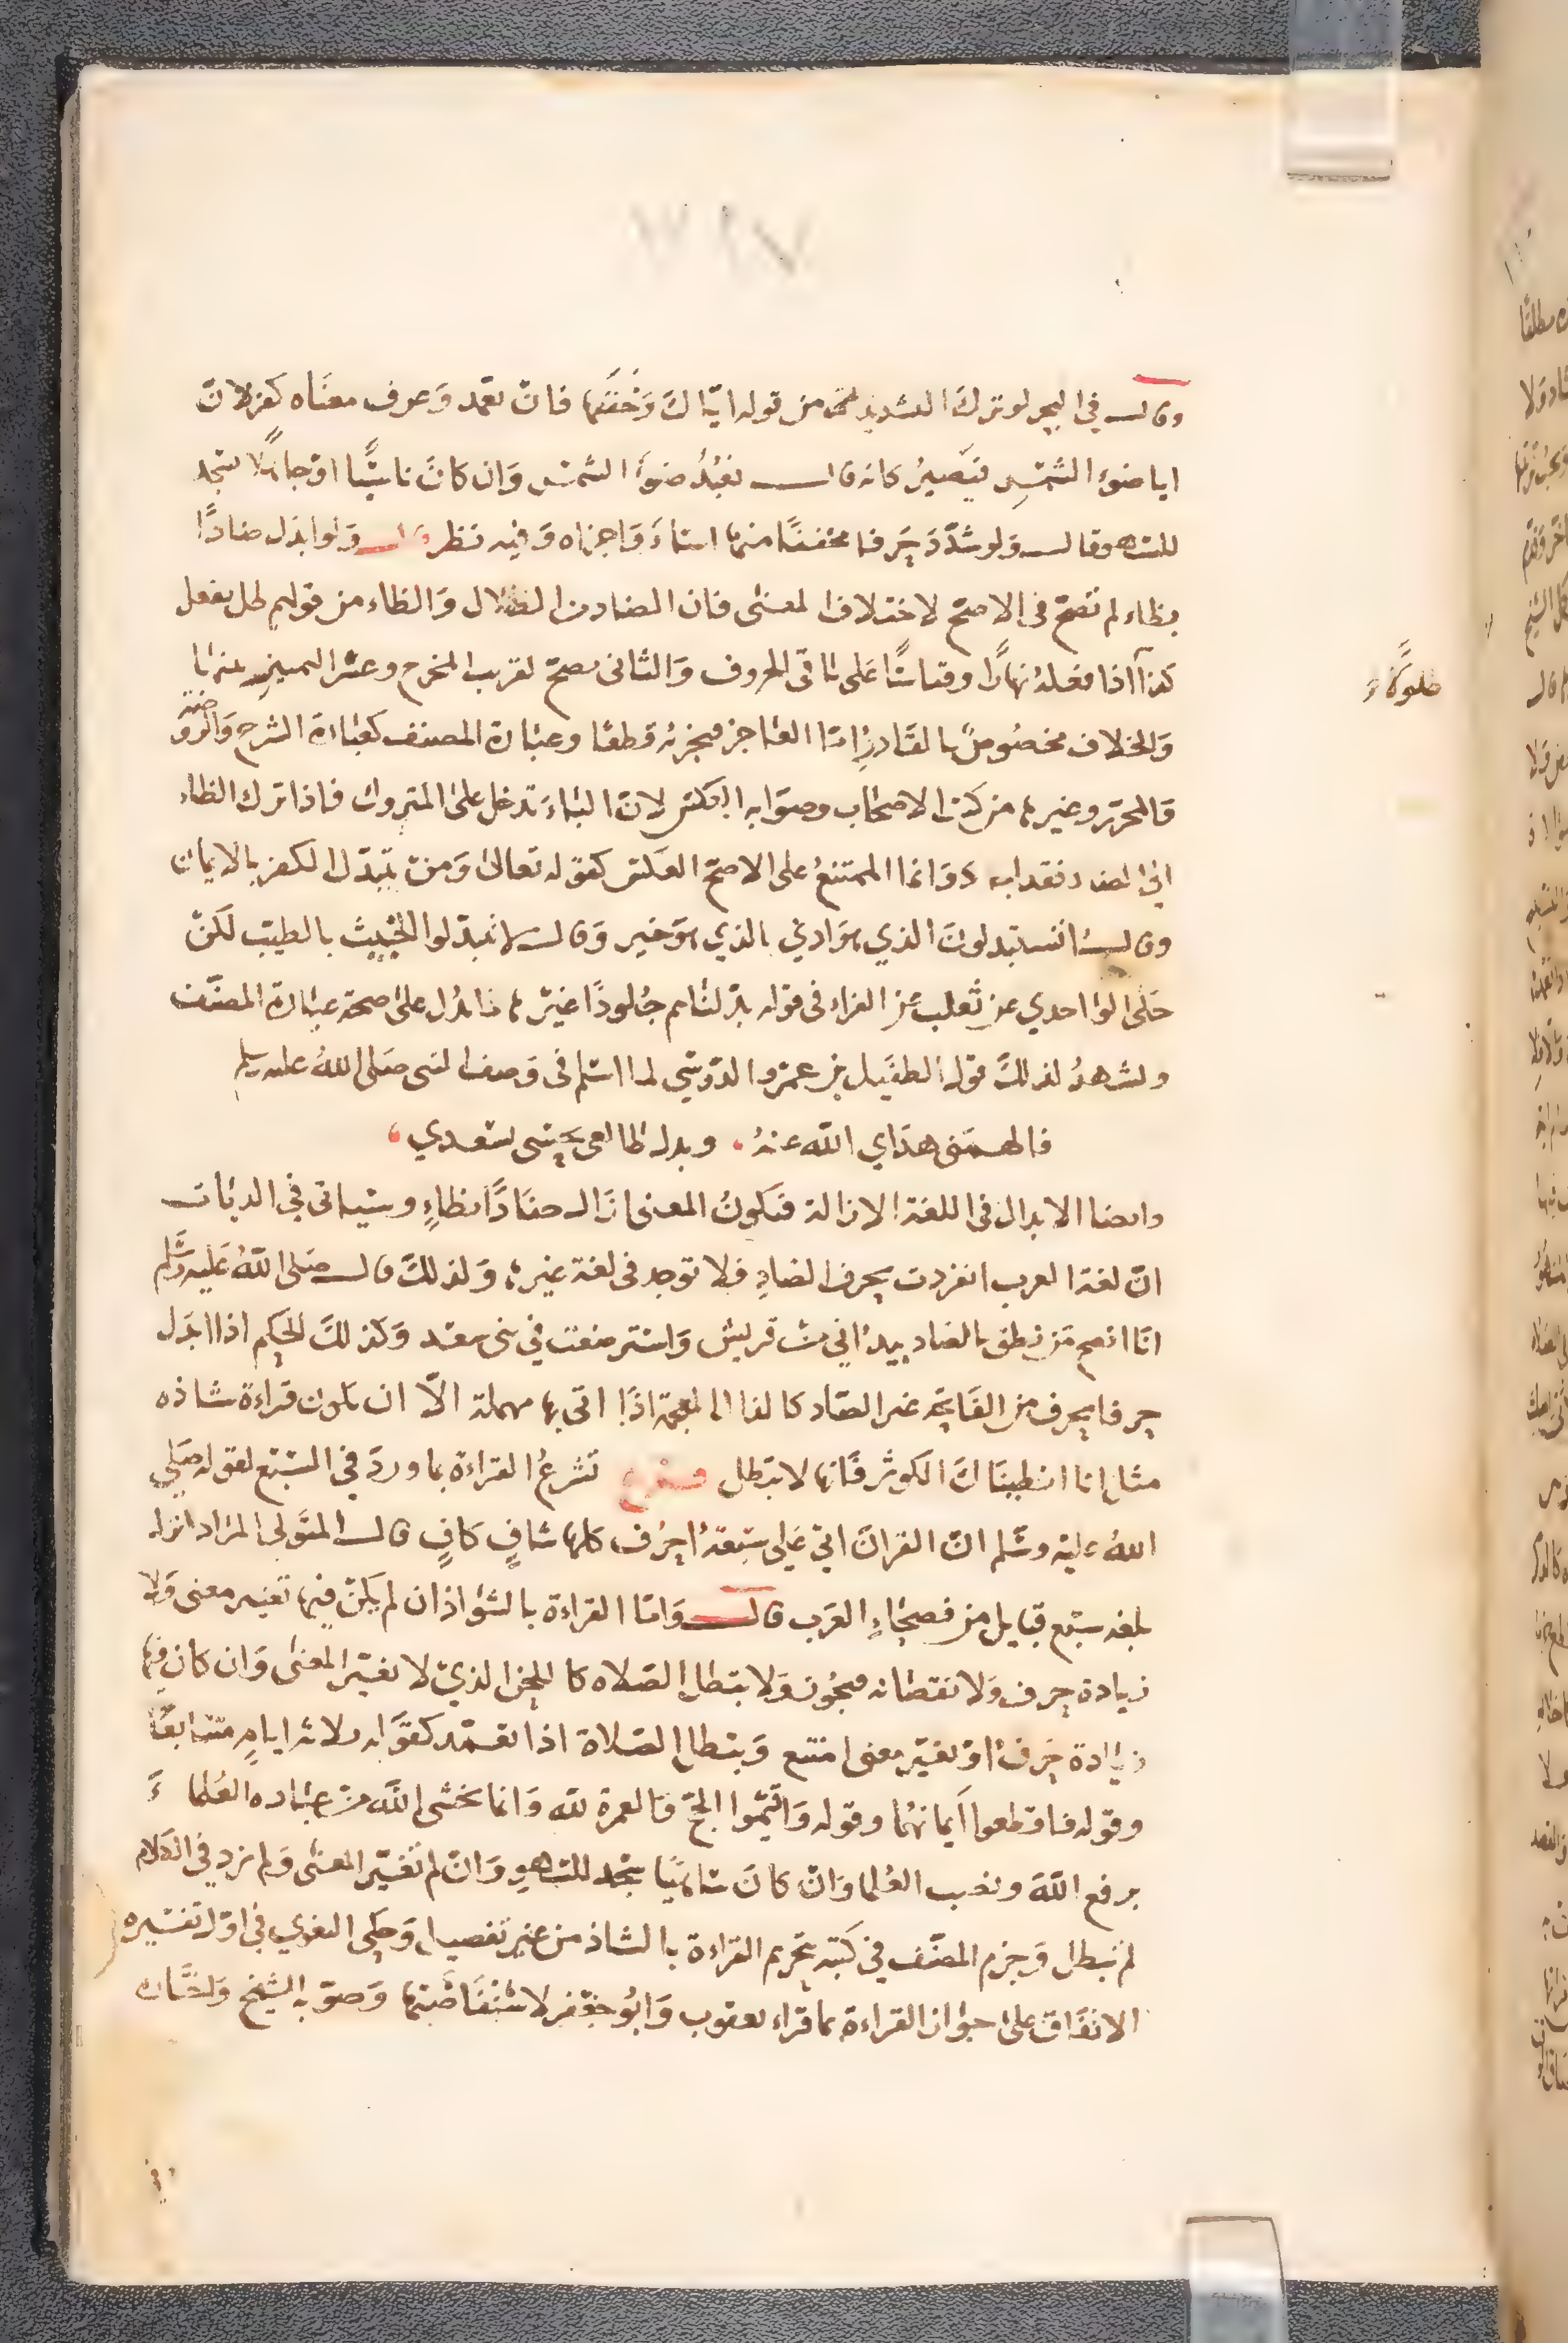 وقال في البحر لو ترك التشديد من قوله اياك وخففها فان تعمد وعرف معناه كفر لان
ايا ضوء الشمس فيصير كانه قال نعبد ضوء الشمس وان كان ناسيا او جاهلا سجد
للسهو قال ولو شدد حرفا مخففا منها اساء واجزاه وفيه نظر قال ولو ابدل ضادا
بظاء لم تصح في الاصح لاختلاف المعنى فان الضاد من الضلال والظاء من قولهم ظل يفعل
كذا اذا فعله نهارا وقياسا على باقي الحروف والثاني يصح لقرب المخرج وعسر التمييز بينهما
ظلولا
والخلاف مخصوص بالقادر اما العاجز فيجزئه قطعا وعبارة المصنف كعبارة الشرح والروضة
والمحرر وغيرها من كتب الاصحاب وصوابه العكس لان الباء تدخل على المتروك فاذا ترك الظاء
الى الضاد فقد وانما الممتنع على الاصح العكس كقوله تعالى ومن يتبدل الكفر بالايمان
وقال اتستبدلون الذي هو ادنى بالذي هو خير وقال لا تتبدلوا الخبيث بالطيب لكن
حكى الواحدي عن ثعلب عن الفراء في قوله بدلناهم جلودا غيرها ما يدل على صحة عبارة المصنف
ويشهد لذلك قول الطفيل بن عمرو الدوسي لما اسلم في وصف النبي صلى الله عليه وسلم
فالهمني هداي الله عنه وبدل طالعي نحسي بسعدي
وايضا الابدال في اللغة الازالة فيكون المعنى ازال ضادا بظاء وسياتي في الديات
ان لغة العرب انفردت بحرف الضاد فلا توجد في لغة غيرها ولذلك قال صلى الله عليه وسلم
انا افصح من نطق بالضاد بيد اني من قريش واسترضعت في بني سعد وكذلك الحكم اذا ابدل
حرفا بحرف من الفاتحة غير الضاد كالذال المعجمة اذا اتى بها مهملة الا ان يكون قراءة شاذه
مثل انا انطيناك الكوثر فانها لا تبطل فرع تشرع القراءة بما ورد في السبع لقوله صلى
الله عليه وسلم ان القران انزل على سبعة احرف كلها شاف كاف قال المتولي المراد انزل
بلغة سبع قبايل من فصحاء العرب قال واما القراءة بالشواذ ان لم يكن فيها تغيير معنى ولا
زيادة حرف ولا نقصانه فيجوز ولا تبطل الصلاه كاللحن الذي لا يغير المعنى وان كان فيها
زيادة حرف او تغيير معنى امتنع وتبطل الصلاة اذا تعمد كقوله ثلاثة ايام متتابعة
وقوله فاقطعوا ايمانهما وقوله واتموا الحج والعمرة لله وانما يخشى الله من عباده العلماء
برفع الله ونصب العلما وان كان ساهيا سجد للسهو وان لم تغير المعنى ولم تزد في الكلام
لم تبطل وجزم المصنف في كتبه بتحريم القراءة بالشاذ من غير تفصيل وحكى البغوي في اول تفسيره
الاتفاق على جواز القراءة بما قراء يعقوب وابو جعفر لاستفاضتها وصوبه الشيخ
في